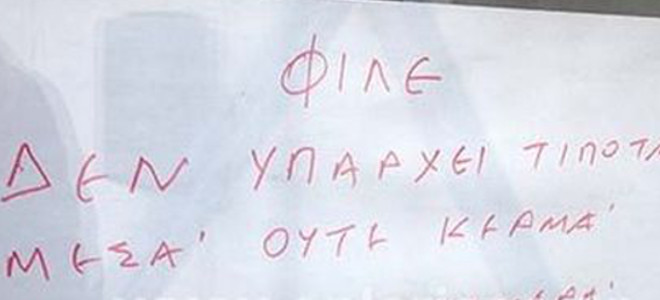 ΦΙΛΕ
ΔΕΝ ΥΠΑΡΧΕΙ ΤΙΠΟΤΑ
ΜΕΣΑ' ΟΥΤΕ ΚΕΡΜΑ'